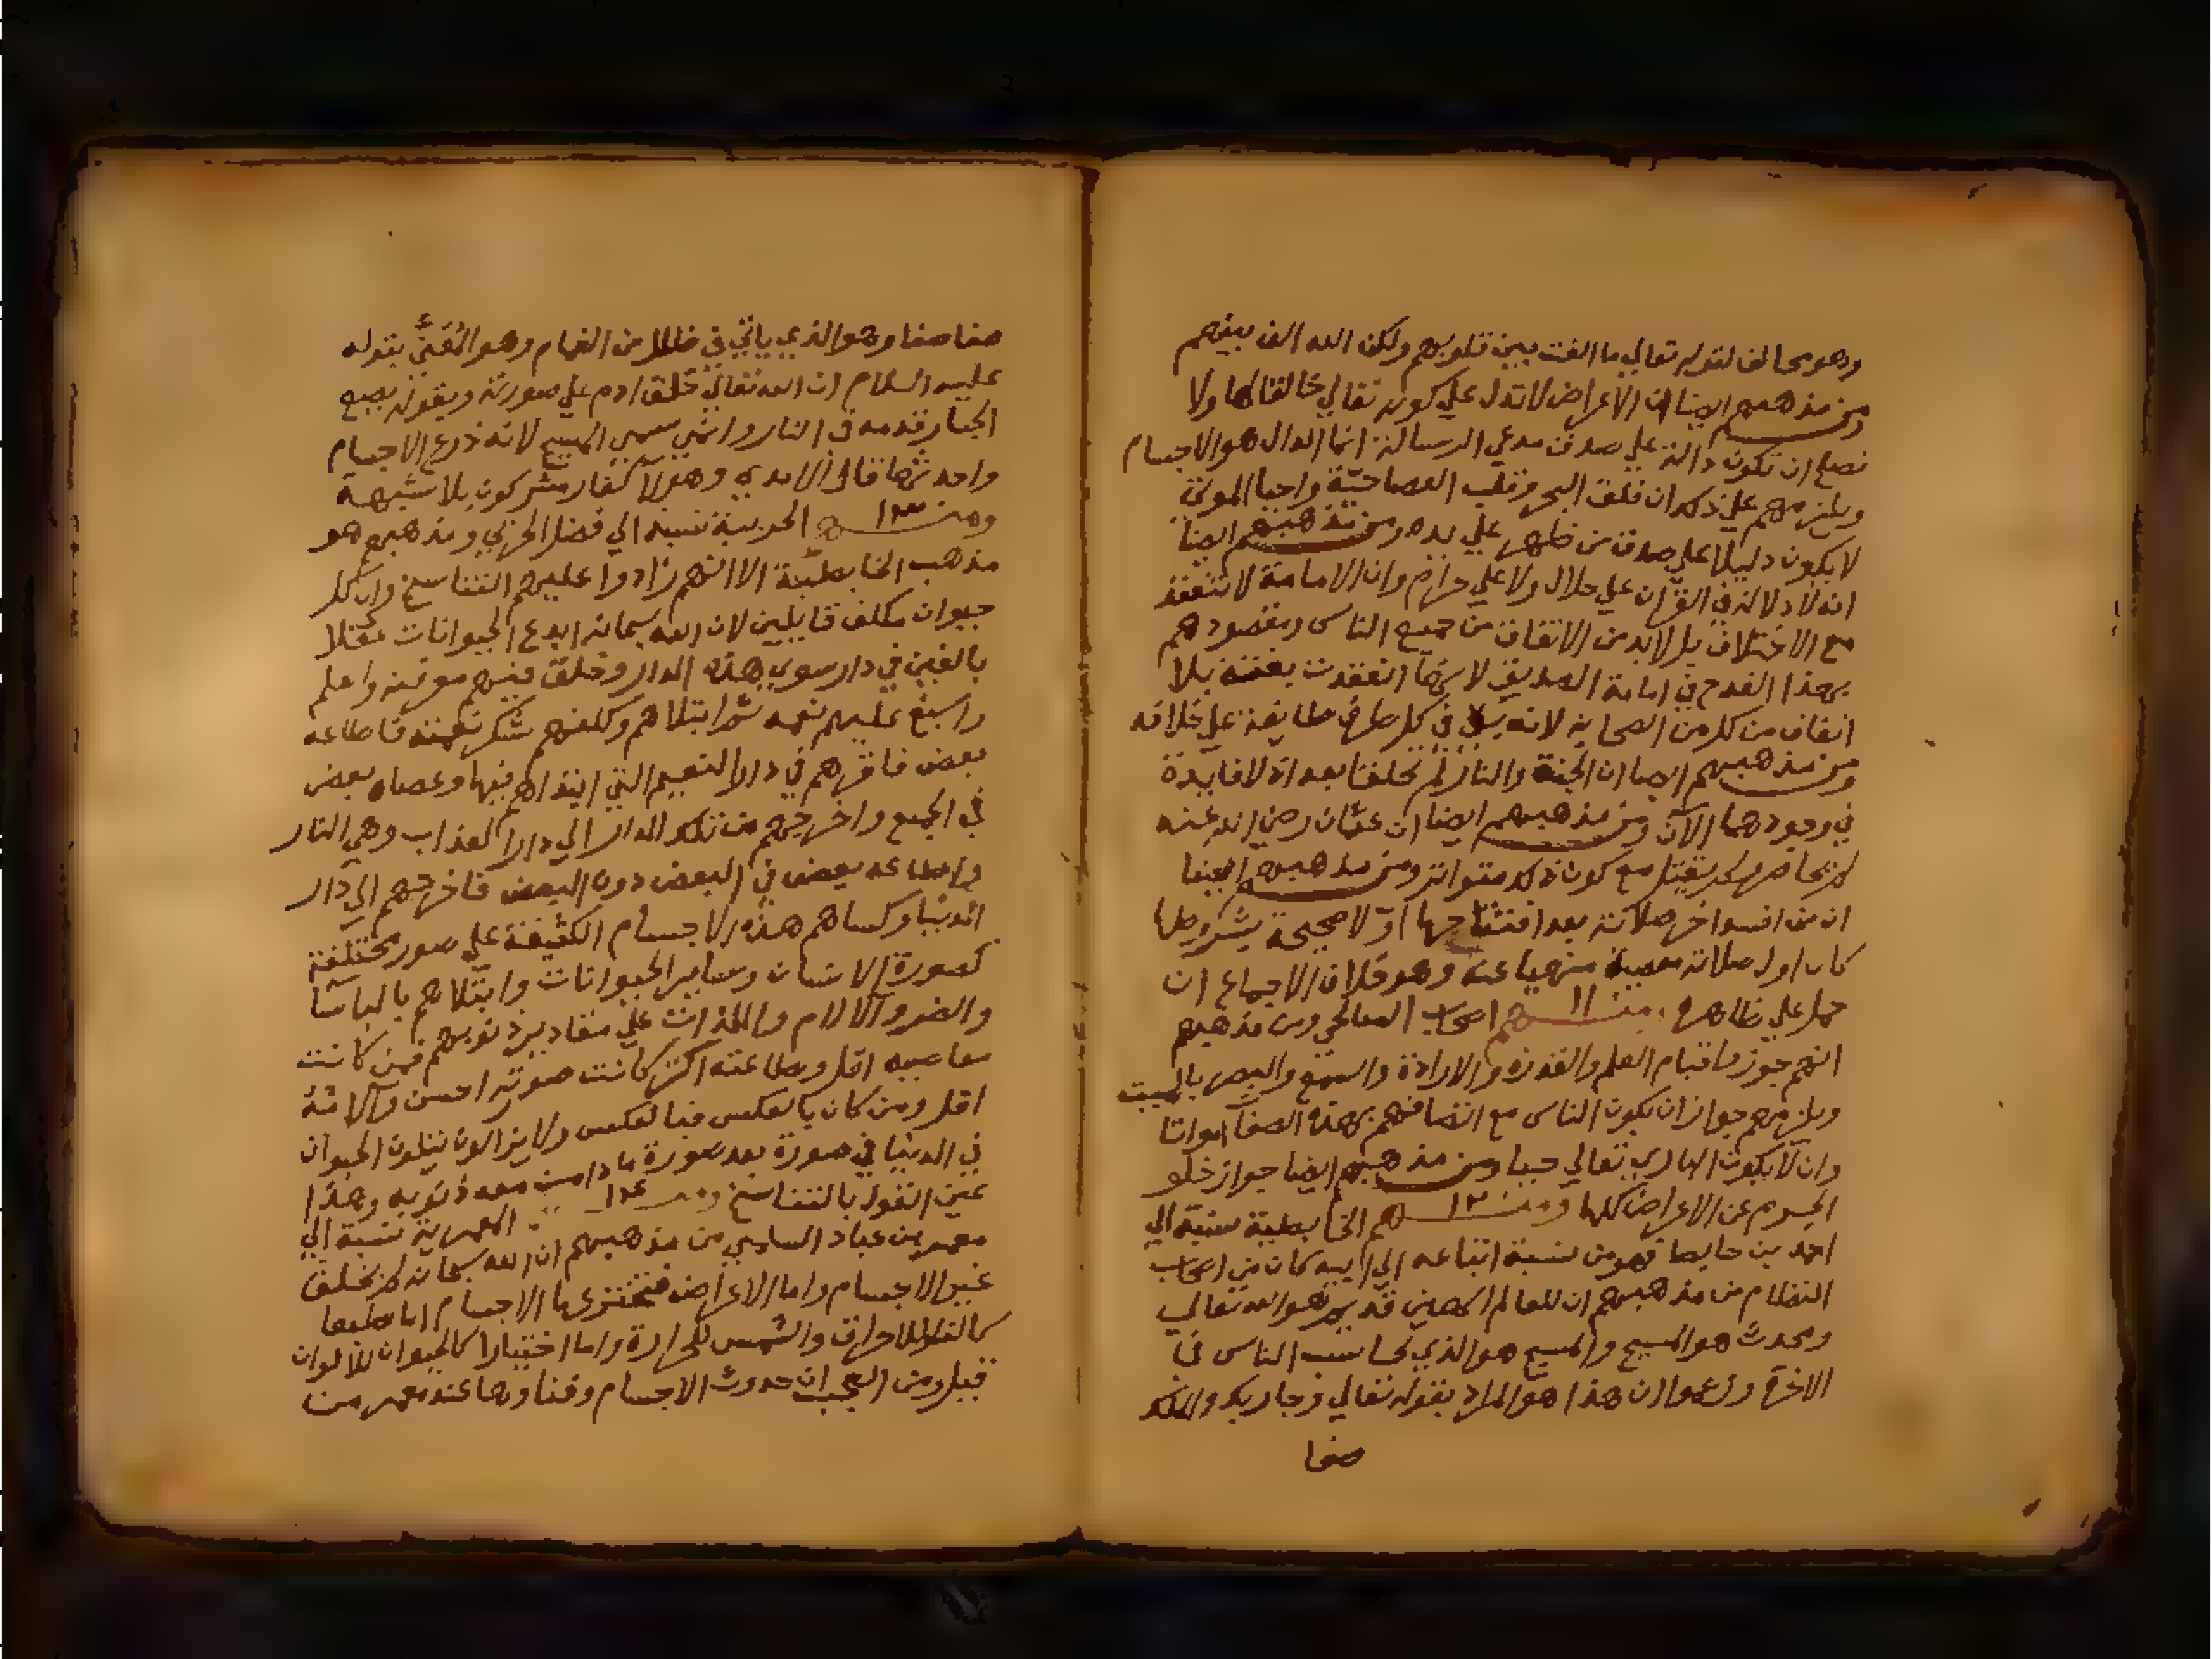 وهو مخالف لقوله تعالي ما الفت بين قلوبهم ولكن الله الف بينهم
ومن مذهبهم ايضا ان الاعراض لا تدل علي كونه تعالي خالقا لها ولا
تصلح ان تكون دالة علي صدق مدعي الرسالة انما الدال هو الاجسام
ويلزمهم علي ذلك ان فلق البحر وقلب العصا حيّة واحيا الموتي
لا يكون دليلا علي صدق من ظهر علي يده ومن مذهبهم ايضا
انه لا دلالة في القرآن علي حلال ولا علي حرام وان الامامة لا تنعقد
مع الاختلاف بل لا بد من الاتفاق من جميع الناس ومقصودهم
بهذا القدح في امامة الصديق لانها انعقدت بغتة بلا
اتفاق من كل من الصحابة لانه بقي في كل طرف طايفة علي خلافه
ومن مذهبهم ايضا ان الجنة والنار لم تخلقا بعد اذ لا فايدة
في وجودهما الآن ومن مذهبهم ايضا ان عثمان رضي الله عنه
لم يحاصر ولم يقتل مع كون ذلك متواتر ومن مذهبهم ايضا
ان من افسد اخر صلاته بعد افتتاحها اوّلا صحيحة بشروطها
كان اول صلاته معصية منهيا عنه وهو خلاف الاجماع ان
حمل علي ظاهره ومنـ ١١ ـهم اصحاب الصالحي ومن مذهبهم
انهم جوزوا قيام العلم والقدرة والارادة والسمع والبصر بالميت
ويلزمهم جواز ان يكون الناس مع اتصافهم بهذه الصفا امواتا
وان لا يكون الباري تعالي حيا ومن مذهبهم ايضا جواز خلو
الجسم عن الاعراض كلها ومنـ ١٢ ـهم الخابطية نسبة الي
احمد بن حابط فهو من نسبة اتباعه الي ابيه كان من اصحاب
النظام من مذهبهم ان للعالم الهين قديم هو الله تعالي
ومحدث هو المسيح والمسيح هو الذي يحاسب الناس في
الاخرة وزعموا ان هذا هو المراد بقوله تعالي وجا ربك والملك
صفا
صفا صفا وهو الذي ياتي في ظلل من الغمام وهو المَعْنيُّ بقوله
عليه السلام ان الله تعالي خلق ادم علي صورته وبقوله يضع
الجبار قدمه في النار وانما سمي المسيح لانه ذرع الاجسام
واحدثها قال الامدي وهولآ كفار مشركون بلا شبهة
ومنـ ١٣ ـهم الحدبية نسبة الي فضل الحدبي ومذهبهم هو
مذهب الخابطيّة الا انهم زادوا عليهم التناسخ وان كل
حيوان مكلف قايلين لان الله سبحانه ابدع الحيوانات عقلا
بالغين في دار سوي هذه الدار وخلق فيهم معرفته واعلم
واسبغ عليهم نعمه ثم ابتلاهم وكلفهم شكر نعمته فاطاعه
بعض فاقرهم في دار النعيم التي ابتداهم فيها وعصاه بعض
في الجميع واخرجهم من تلك الدار الي دار العذاب وهي النار
واطاعه بعض في البعض دون البعض فاخرجهم الي دار
الدنيا وكساهم هذه الاجسام الكثيفة علي صور مختلفة
كصورة الانسان وساير الحيوانات وابتلاهم بالباسآ
والضر والآلام واللذات علي مقادير ذنوبهم فمن كانت
معاصيه اقل وطاعته اكثر كانت صورته احسن وآلامه
اقل ومن كان بالعكس فبالعكس ولا يزالون ينقلون الحيوان
في الدنيا في صورة بعد صورة ما دامت معه ذنوبه وهذا
عين القول بالتناسخ ومنـ ١٤ ـهم المعمرية نسبة الي
معمر بن عباد السلمي من مذهبهم ان الله سبحانه لم يخلق
غير الاجسام واما الاعراض فتخترعها الاجسام اما طبعا
كالنار للاحراق والشمس للحرارة واما اختيارا كالحيوان للالوان
قيل ومن العجب ان حدوث الاجسام وفناوها عند معمر من